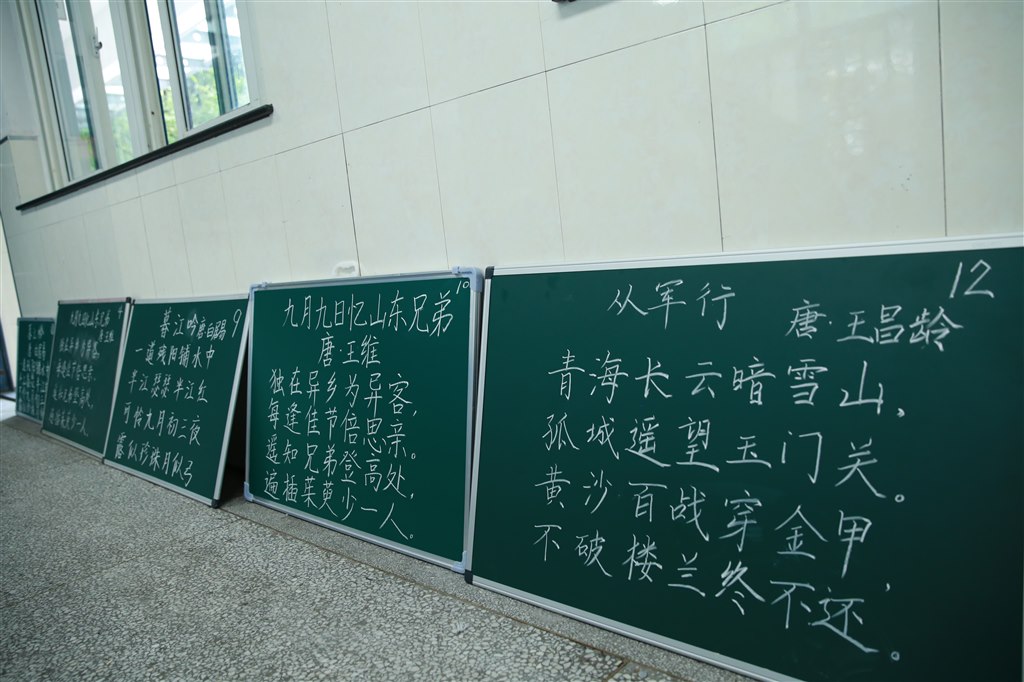 12
从军行
唐·王昌龄
青海长云暗雪山,
孤城遥望玉门关。
黄沙百战穿金甲,
不破楼兰终不还。
10
九月九日忆山东兄弟
唐 王维
独在异乡为异客,
每逢佳节倍思亲。
遥知兄弟登高处,
遍插茱萸少一人。
9
暮江吟 唐 白居易
一道残阳铺水中
半江瑟瑟半江红
可怜九月初三夜
露似珍珠月似弓
4
九月九日忆山东兄弟